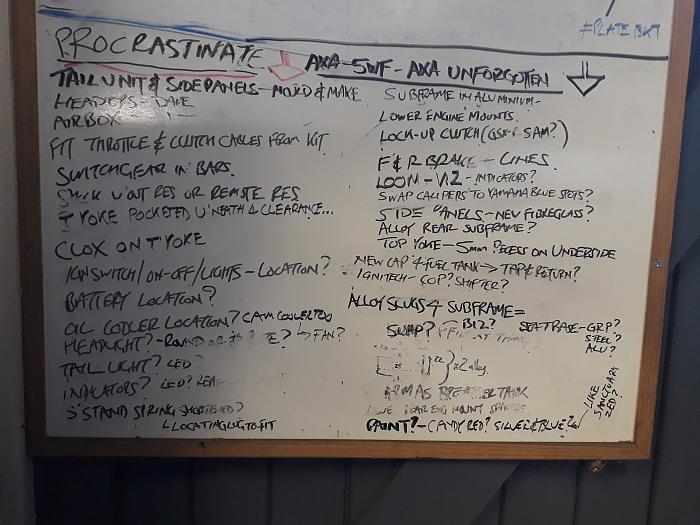 #PLATE BKT
PROCRASTINATE
TAIL UNIT & SIDEPANELS - MOULD & MAKE
HEADERS - DAVE
AIRBOX
FIT THROTTLE & CLUTCH CABLES FROM KIT
SWITCHGEAR IN BARS.
RES OR REMOTE RES
T YOKE POCKETED U'NEATH 4 CLEARANCE...
CLOX ON T'YOKE
IGN SWITCH/ON-OFF/LIGHTS - LOCATION?
BATTERY LOCATION?
OIL COOLER LOCATION? CAM COOLER TOO
HEADLIGHT? - ROUND OR ? → FAN?
TAIL LIGHT? LED?
INDICATORS? LED?
S'STAND SPRING SHORTENED?
LOCATING LUG TO FIT
AXA-5WF - AXA UNFORGOTTEN
SUBFRAME IN ALUMINIUM -
LOWER ENGINE MOUNTS.
LOCK-UP CLUTCH (GSX-? SAM?)
F & R BRAKE - LINES
LOOM - V1.2 - INDICATORS?
SWAP CALIPERS TO YAMAHA BLUE SPOTS?
SIDE PANELS - NEW FIBREGLASS?
ALLOY REAR SUBFRAME?
TOP YOKE - 5mm RECESS ON UNDERSIDE
NEW CAP 4 FUEL TANK → TAP & RETURN?
IGNITECH - COP? SHIFTER?
ALLOY SLUGS 4 SUBFRAME =
SWAP? B12? SEATBASE - GRP?
STEEL?
ALU?
x2 alloy
BREATHER TANK
REAR ENG MOUNT
PAINT? - CANDY RED? SILVER & BLUE?
LIKE SANCTUARY ZED?